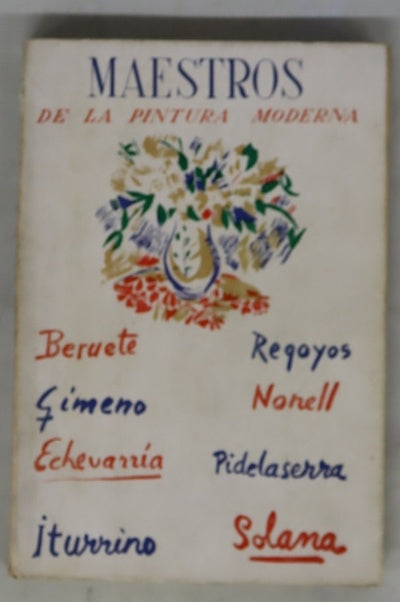 MAESTROS
DE LA PINTURA MODERNA
Beruete
Regoyos
Gimeno
Nonell
Echevarría
Pidelaserra
Iturrino
Solana